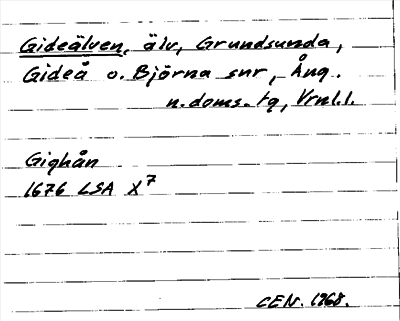 Gideälven, älv, Grundsunda,
Gideå o. Björna snr, Ång.
n. doms. tg, Vrnl.l.
Gighån
1676 LSA X7
CEN. 1968.